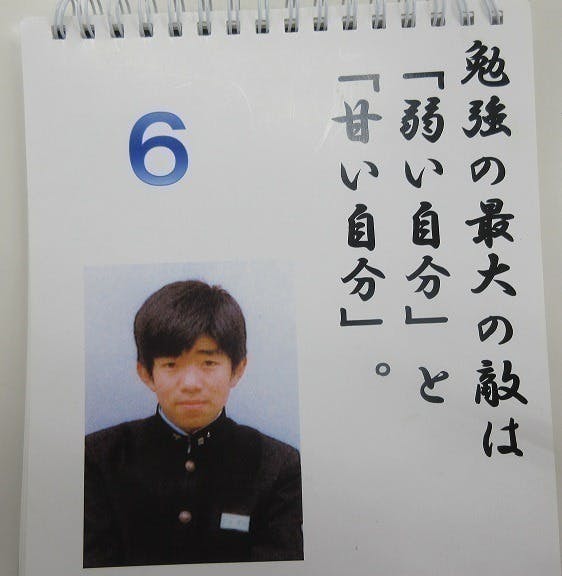 勉強の最大の敵は
「弱い自分」と
「甘い自分」。
6